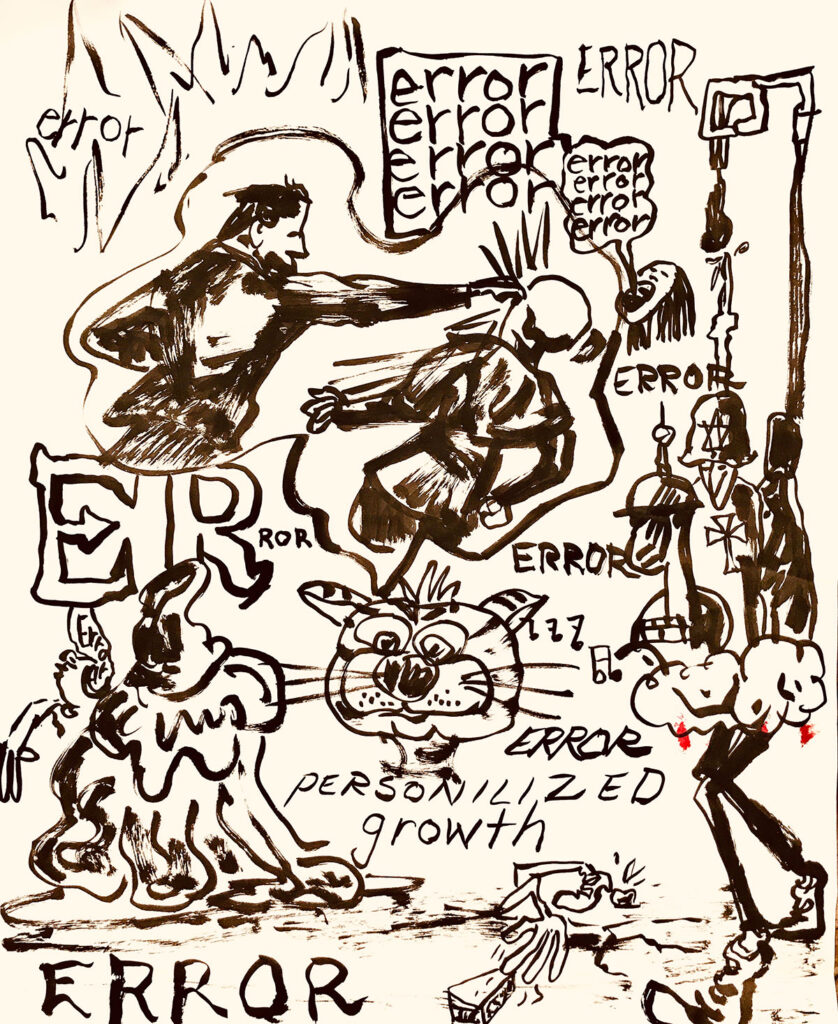 ERROR
error
error
error
error
error
error
error
error
error
error
ERROR
ER
ROR
ERROR
Error
zzz
ERROR
PERSONILIZED
growth
ERROR